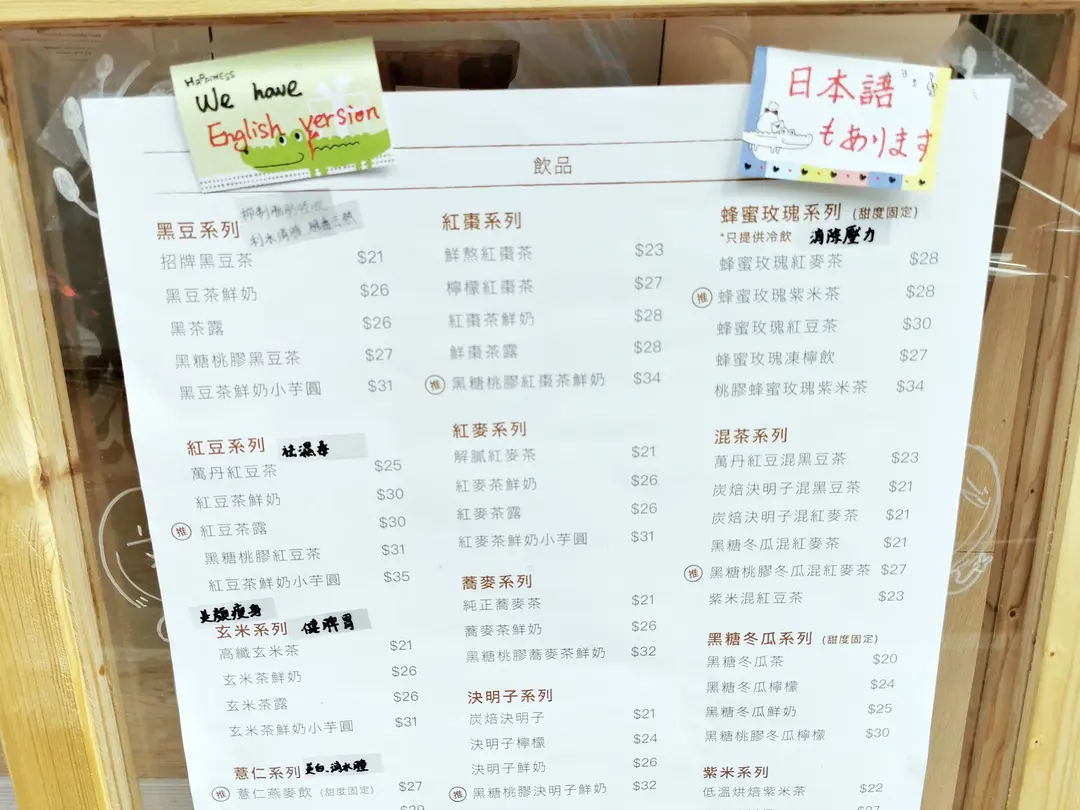 HAPPINESS
We have
English version
日本語
もあります
飲品
黑豆系列
招牌黑豆茶 $21
黑豆茶鮮奶 $26
黑茶露 $26
黑糖桃膠黑豆茶 $27
黑豆茶鮮奶小芋圓 $31
紅豆系列 祛濕毒
萬丹紅豆茶 $25
紅豆茶鮮奶 $30
推 紅豆茶露 $30
黑糖桃膠紅豆茶 $31
紅豆茶鮮奶小芋圓 $35
美顏瘦身
玄米系列 健脾胃
高纖玄米茶 $21
玄米茶鮮奶 $26
玄米茶露 $26
玄米茶鮮奶小芋圓 $31
薏仁系列 美白、消水腫
推 薏仁燕麥飲 (甜度固定) $27
紅棗系列
鮮熬紅棗茶 $23
檸檬紅棗茶 $27
紅棗茶鮮奶 $28
鮮棗茶露 $28
推 黑糖桃膠紅棗茶鮮奶 $34
紅麥系列
解膩紅麥茶 $21
紅麥茶鮮奶 $26
紅麥茶露 $26
紅麥茶鮮奶小芋圓 $31
蕎麥系列
純正蕎麥茶 $21
蕎麥茶鮮奶 $26
黑糖桃膠蕎麥茶鮮奶 $32
決明子系列
炭焙決明子 $21
決明子檸檬 $24
決明子鮮奶 $26
推 黑糖桃膠決明子鮮奶 $32
蜂蜜玫瑰系列 (甜度固定)
*只提供冷飲 消除壓力
蜂蜜玫瑰紅麥茶 $28
推 蜂蜜玫瑰紫米茶 $28
蜂蜜玫瑰紅豆茶 $30
蜂蜜玫瑰凍檸飲 $27
桃膠蜂蜜玫瑰紫米茶 $34
混茶系列
萬丹紅豆混黑豆茶 $23
炭焙決明子混黑豆茶 $21
炭焙決明子混紅麥茶 $21
黑糖冬瓜混紅麥茶 $21
推 黑糖桃膠冬瓜混紅麥茶 $27
紫米混紅豆茶 $23
黑糖冬瓜系列 (甜度固定)
黑糖冬瓜茶 $20
黑糖冬瓜檸檬 $24
黑糖冬瓜鮮奶 $25
黑糖桃膠冬瓜檸檬 $30
紫米系列
低溫烘焙紫米茶 $22